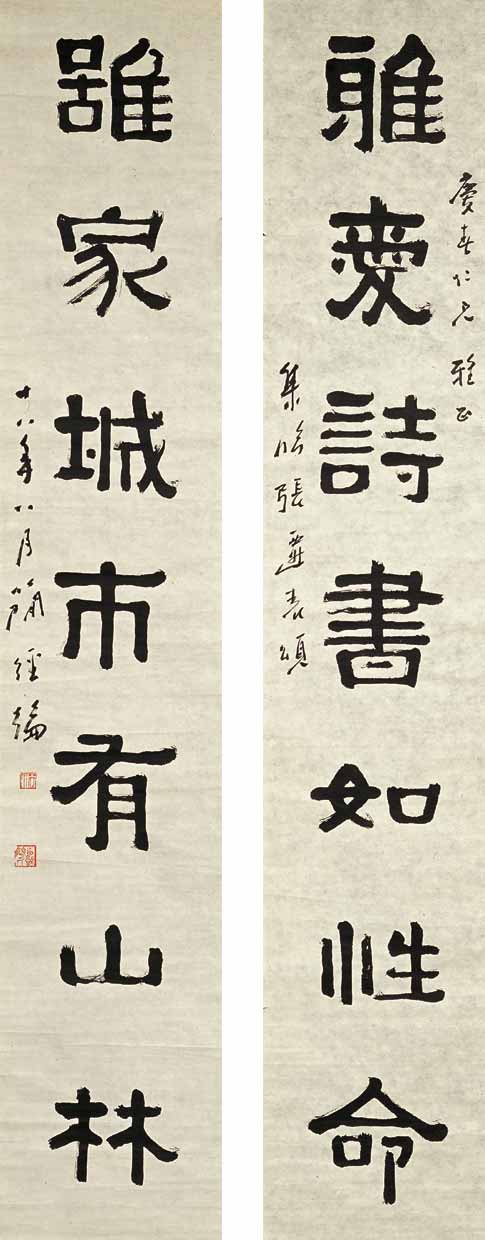 慶春仁兄 雅正
雅愛詩書如性命
集临張遷表頌
雖家城市有山林
十八年八月簡經綸